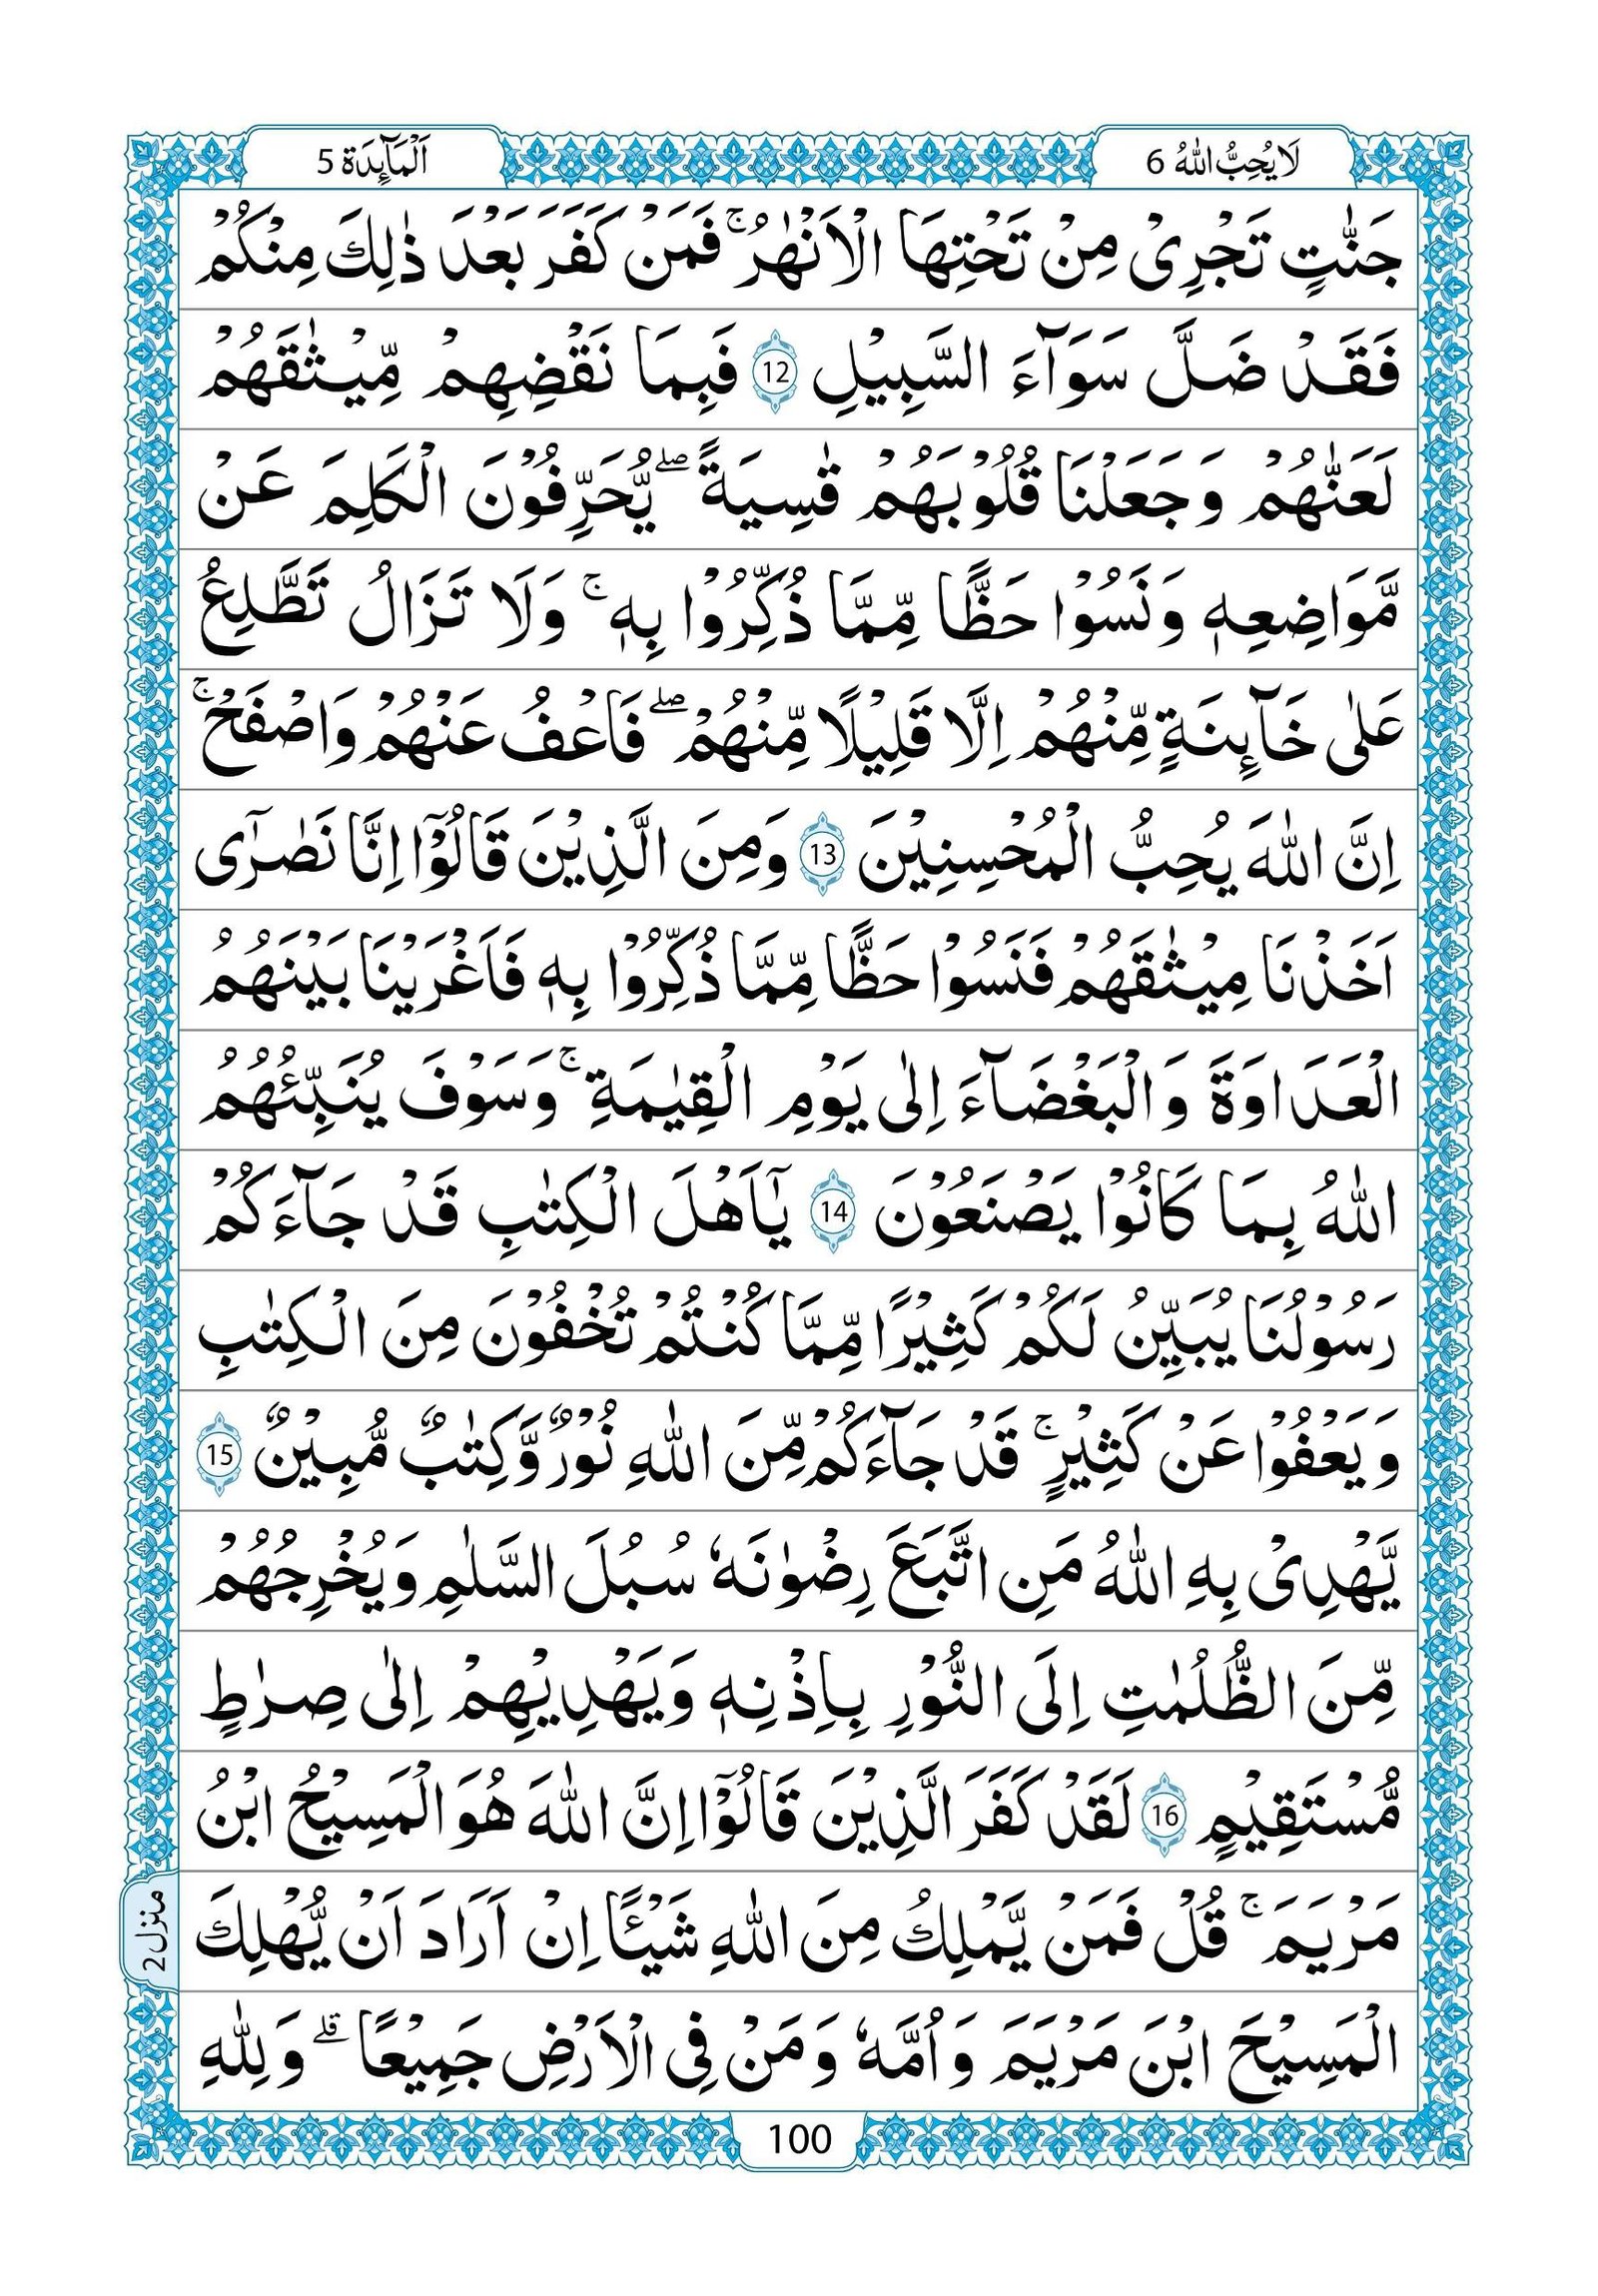 لَا يُحِبُّ اللّٰهُ 6
اَلْمَآئِدَة 5
جَنّٰتٍ تَجْرِیْ مِنْ تَحْتِهَا الْاَنْهٰرُ ۚ فَمَنْ كَفَرَ بَعْدَ ذٰلِكَ مِنْكُمْ
فَقَدْ ضَلَّ سَوَآءَ السَّبِیْلِ 12 فَبِمَا نَقْضِهِمْ مِّیْثٰقَهُمْ
لَعَنّٰهُمْ وَ جَعَلْنَا قُلُوْبَهُمْ قٰسِیَةً ۖ یُّحَرِّفُوْنَ الْكَلِمَ عَنْ
مَّوَاضِعِهٖ وَ نَسُوْا حَظًّا مِّمَّا ذُكِّرُوْا بِهٖ ۚ وَلَا تَزَالُ تَطَّلِعُ
عَلٰی خَآئِنَةٍ مِّنْهُمْ اِلَّا قَلِیْلًا مِّنْهُمْ ۖ فَاعْفُ عَنْهُمْ وَاصْفَحْ ۚ
اِنَّ اللّٰهَ یُحِبُّ الْمُحْسِنِیْنَ 13 وَمِنَ الَّذِیْنَ قَالُوْۤا اِنَّا نَصٰرٰۤی
اَخَذْنَا مِیْثٰقَهُمْ فَنَسُوْا حَظًّا مِّمَّا ذُكِّرُوْا بِهٖ فَاَغْرَیْنَا بَیْنَهُمُ
الْعَدَاوَةَ وَ الْبَغْضَآءَ اِلٰی یَوْمِ الْقِیٰمَةِ ۚ وَسَوْفَ یُنَبِّئُهُمُ
اللّٰهُ بِمَا كَانُوْا یَصْنَعُوْنَ 14 یٰۤاَهْلَ الْكِتٰبِ قَدْ جَآءَكُمْ
رَسُوْلُنَا یُبَیِّنُ لَكُمْ كَثِیْرًا مِّمَّا كُنْتُمْ تُخْفُوْنَ مِنَ الْكِتٰبِ
وَ یَعْفُوْا عَنْ كَثِیْرٍ ۚ قَدْ جَآءَكُمْ مِّنَ اللّٰهِ نُوْرٌ وَّكِتٰبٌ مُّبِیْنٌ 15
یَّهْدِیْ بِهِ اللّٰهُ مَنِ اتَّبَعَ رِضْوٰنَهٗ سُبُلَ السَّلٰمِ وَ یُخْرِجُهُمْ
مِّنَ الظُّلُمٰتِ اِلَی النُّوْرِ بِاِذْنِهٖ وَیَهْدِیْهِمْ اِلٰی صِرٰطٍ
مُّسْتَقِیْمٍ 16 لَقَدْ كَفَرَ الَّذِیْنَ قَالُوْۤا اِنَّ اللّٰهَ هُوَ الْمَسِیْحُ ابْنُ
مَرْیَمَ ۚ قُلْ فَمَنْ یَّمْلِكُ مِنَ اللّٰهِ شَیْئًا اِنْ اَرَادَ اَنْ یُّهْلِكَ
الْمَسِیْحَ ابْنَ مَرْیَمَ وَ اُمَّهٗ وَ مَنْ فِی الْاَرْضِ جَمِیْعًا ۗ وَلِلّٰهِ
منزل 2
100